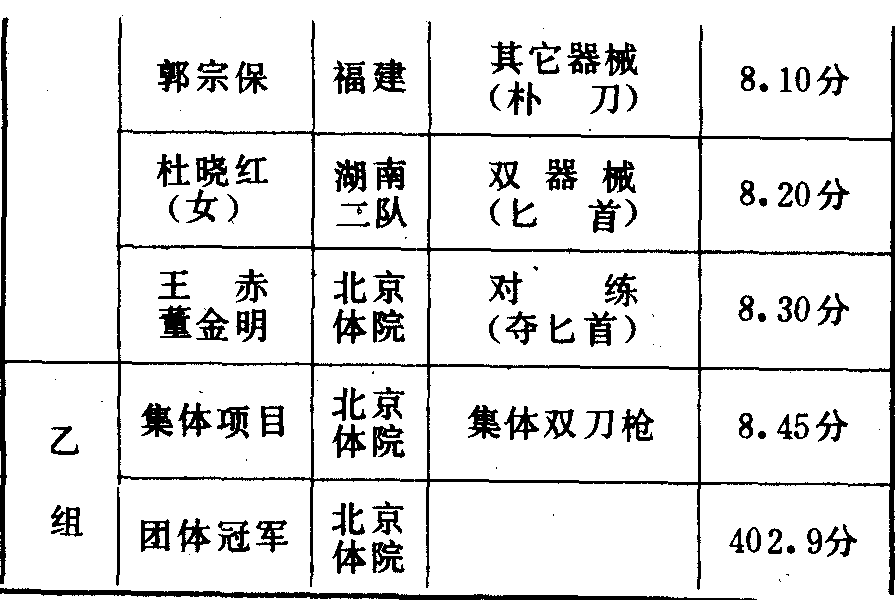 郭宗保 福建 其它器械 8.10分
(朴 刀)
杜晓红 湖南 双器械 8.20分
(女) 二队 (匕 首)
王 赤 北京 对 练 8.30分
董金明 体院 (夺匕首)
乙 集体项目 北京 集体双刀枪 8.45分
体院
组 团体冠军 北京 402.9分
体院